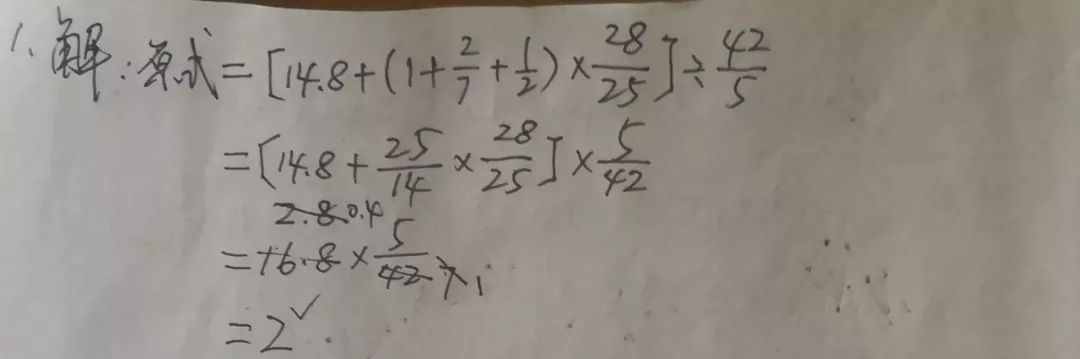 1. 解:原式=[14.8+(1+2/7+1/2)×28/25]÷42/5
=[14.8+25/14×28/25]×5/42
2.8 0.4
=16.8×5/42 7 1
=2✓.